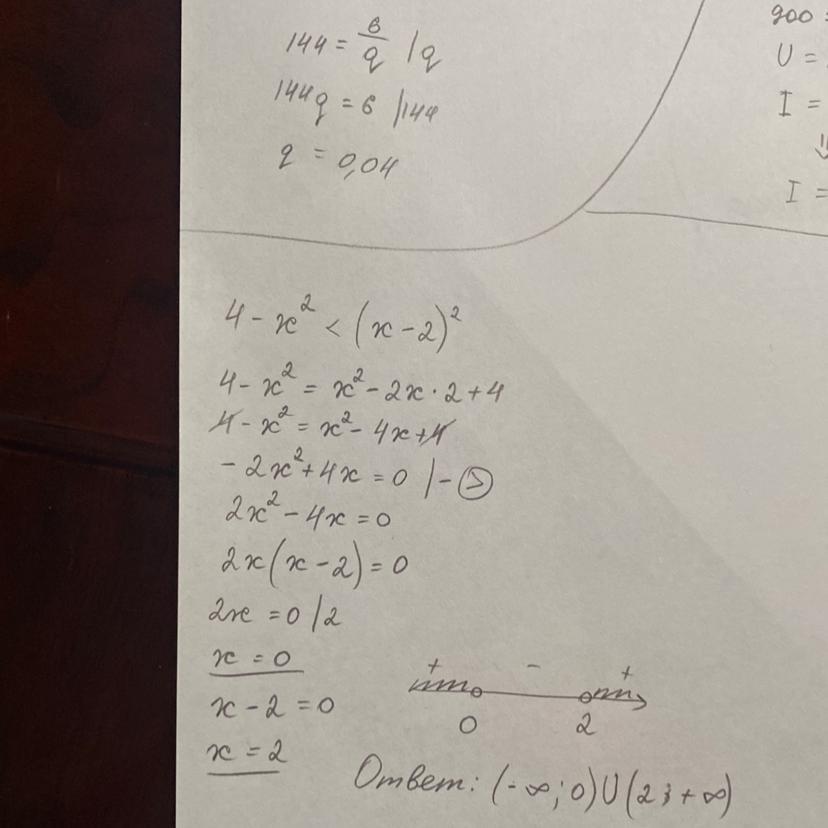 144 = 6/q /q
144q = 6 /144
q = 0,04
900 =
U =
I =
⇓
I =
4 - x² < (x - 2)²
4 - x² = x² - 2x · 2 + 4
4 - x² = x² - 4x + 4
- 2x² + 4x = 0 /- (>)
2x² - 4x = 0
2x(x - 2) = 0
2x = 0 /2
x = 0
x - 2 = 0
x = 2
+ - +
0 2
Ответ: (-∞; 0)U(2; +∞)